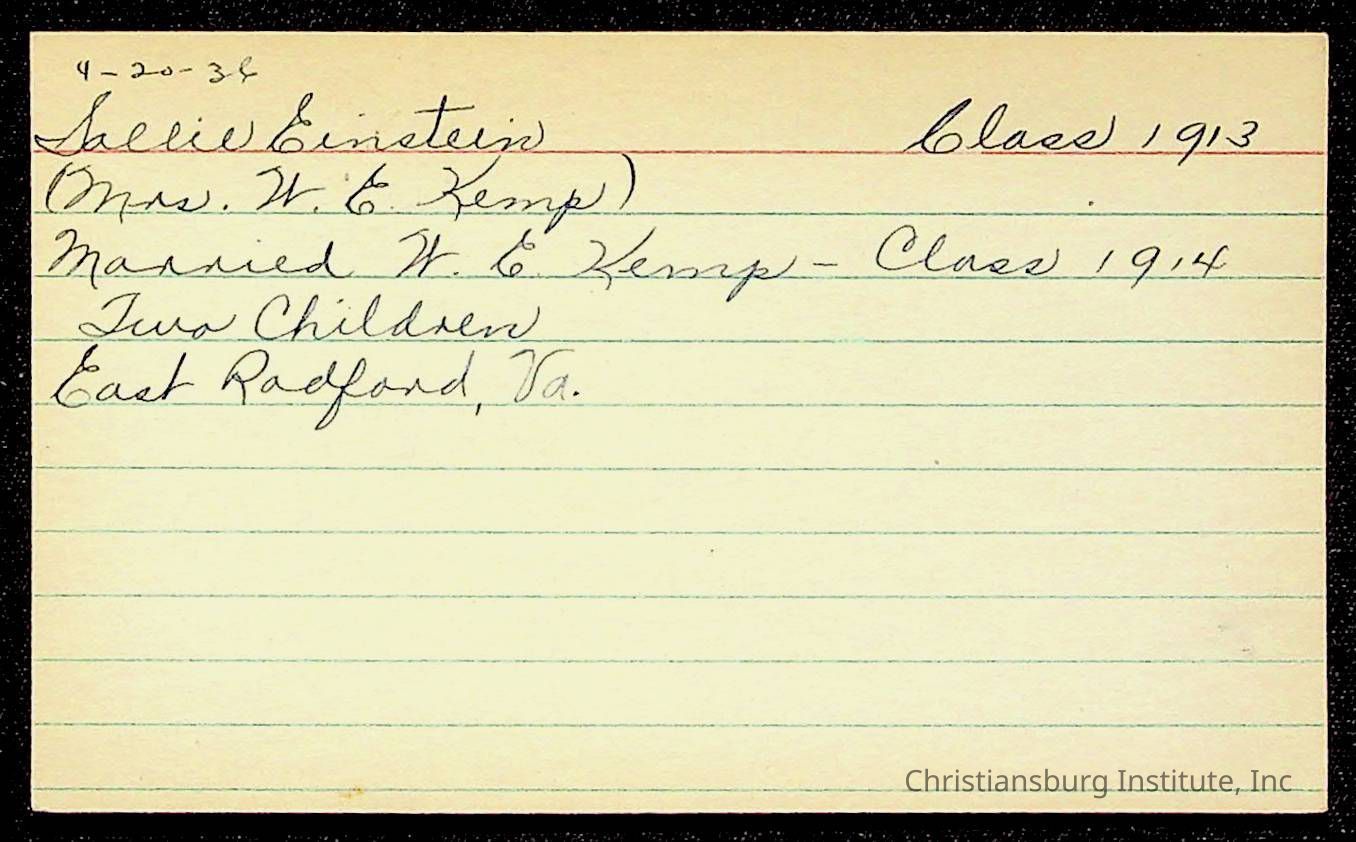 4-20-36
Sallie Einstein Class 1913
(Mrs. W. E. Kemp)
Married W. E. Kemp - Class 1914
Two Children
East Radford, Va.
Christiansburg Institute, Inc